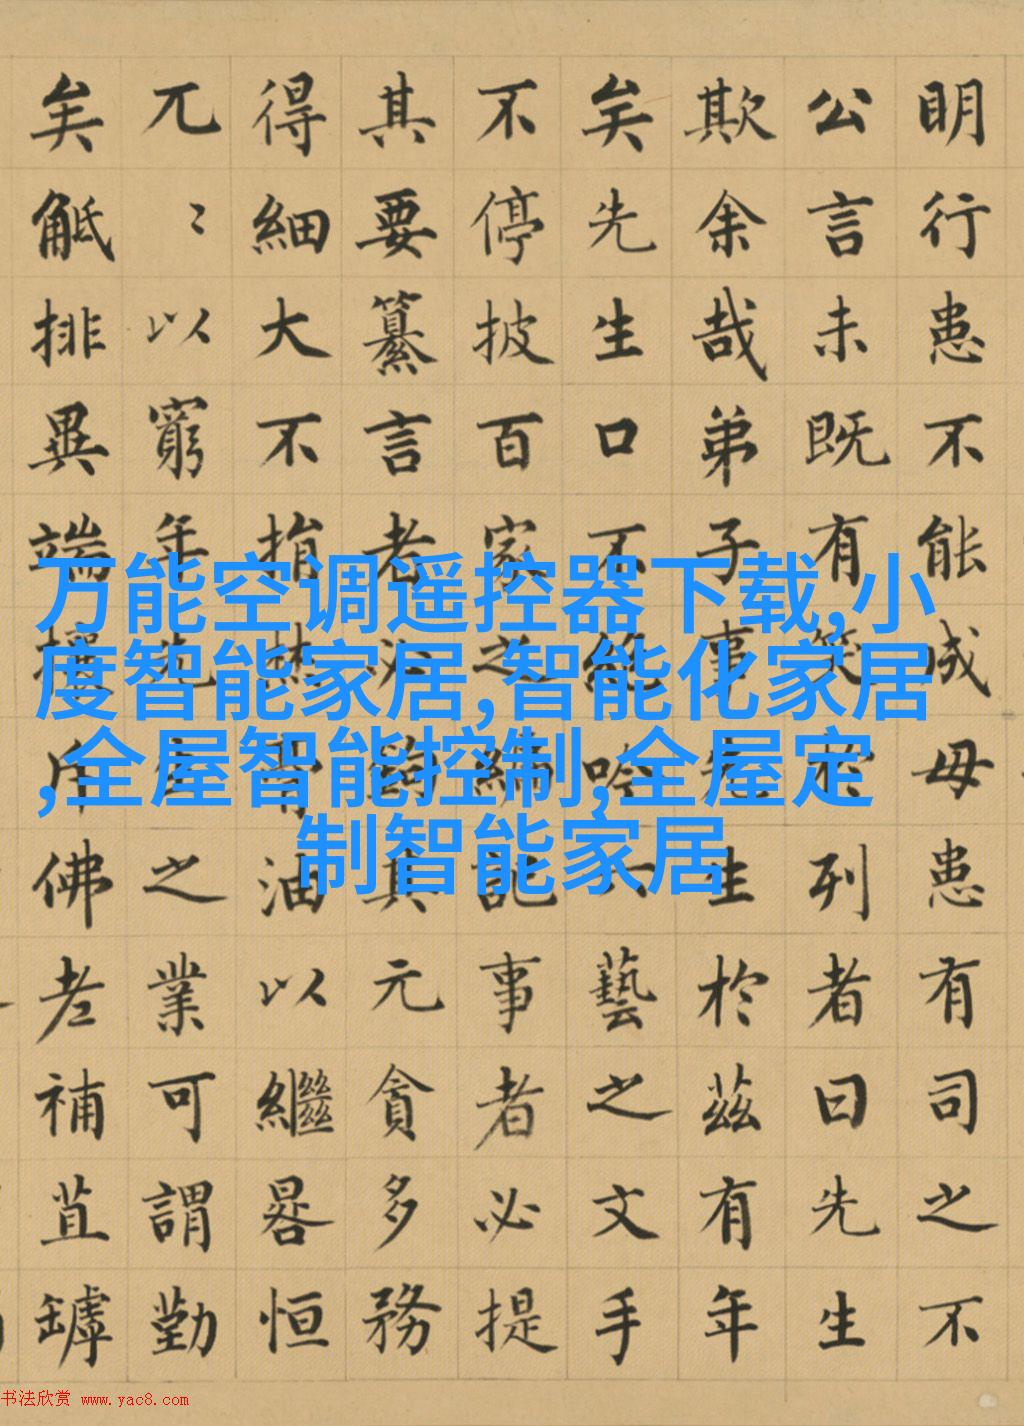 明行患不能成毋患有司之不
公言未既有笑於列者曰先生
欺余哉弟子事先生於茲有年
矣先生口不絶吟六藝之文手
不停披百家之編記事者必提
其要纂言者必鉤其元貪多務
得細大不捐焚膏油以繼晷恒
兀〻以窮年先生之業可謂勤
矣觝排異端攘斥佛老補苴罅
万能空调遥控器下载,小
度智能家居,智能化家居
,全屋智能控制,全屋定
制智能家居
书法欣赏 www.yac8.com